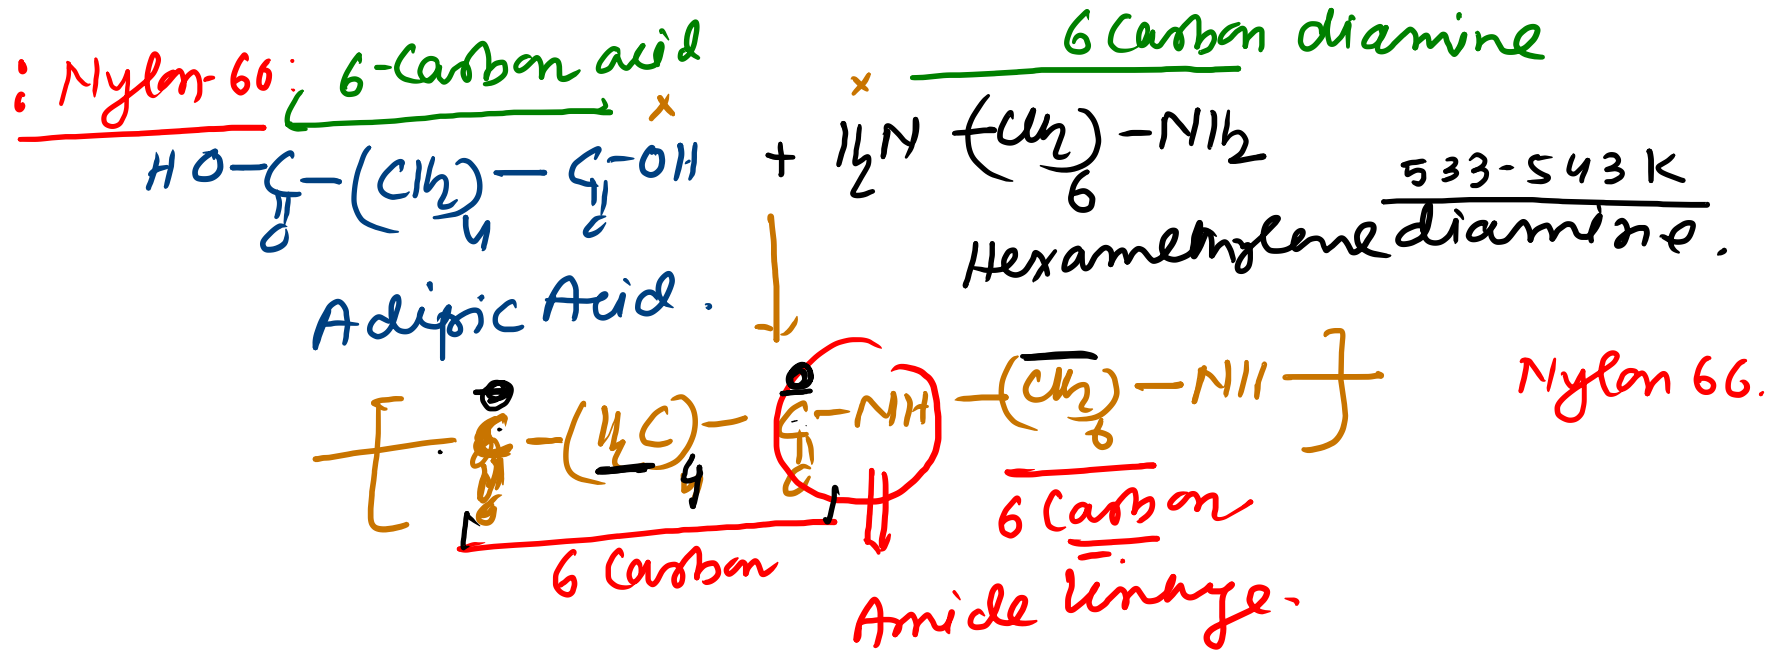 : Nylon-66: 6-Carbon acid 6 Carbon diamine
x x
HO-C-(CH2)4-C-OH + H2N-(CH2)6-NH2 533-543 K
O O
Hexamethylene diamine.
Adipic Acid.
O O
[-C-(H2C)4-C-NH-(CH2)6-NH-] Nylon 66.
6 Carbon 6 Carbon
Amide linkage.